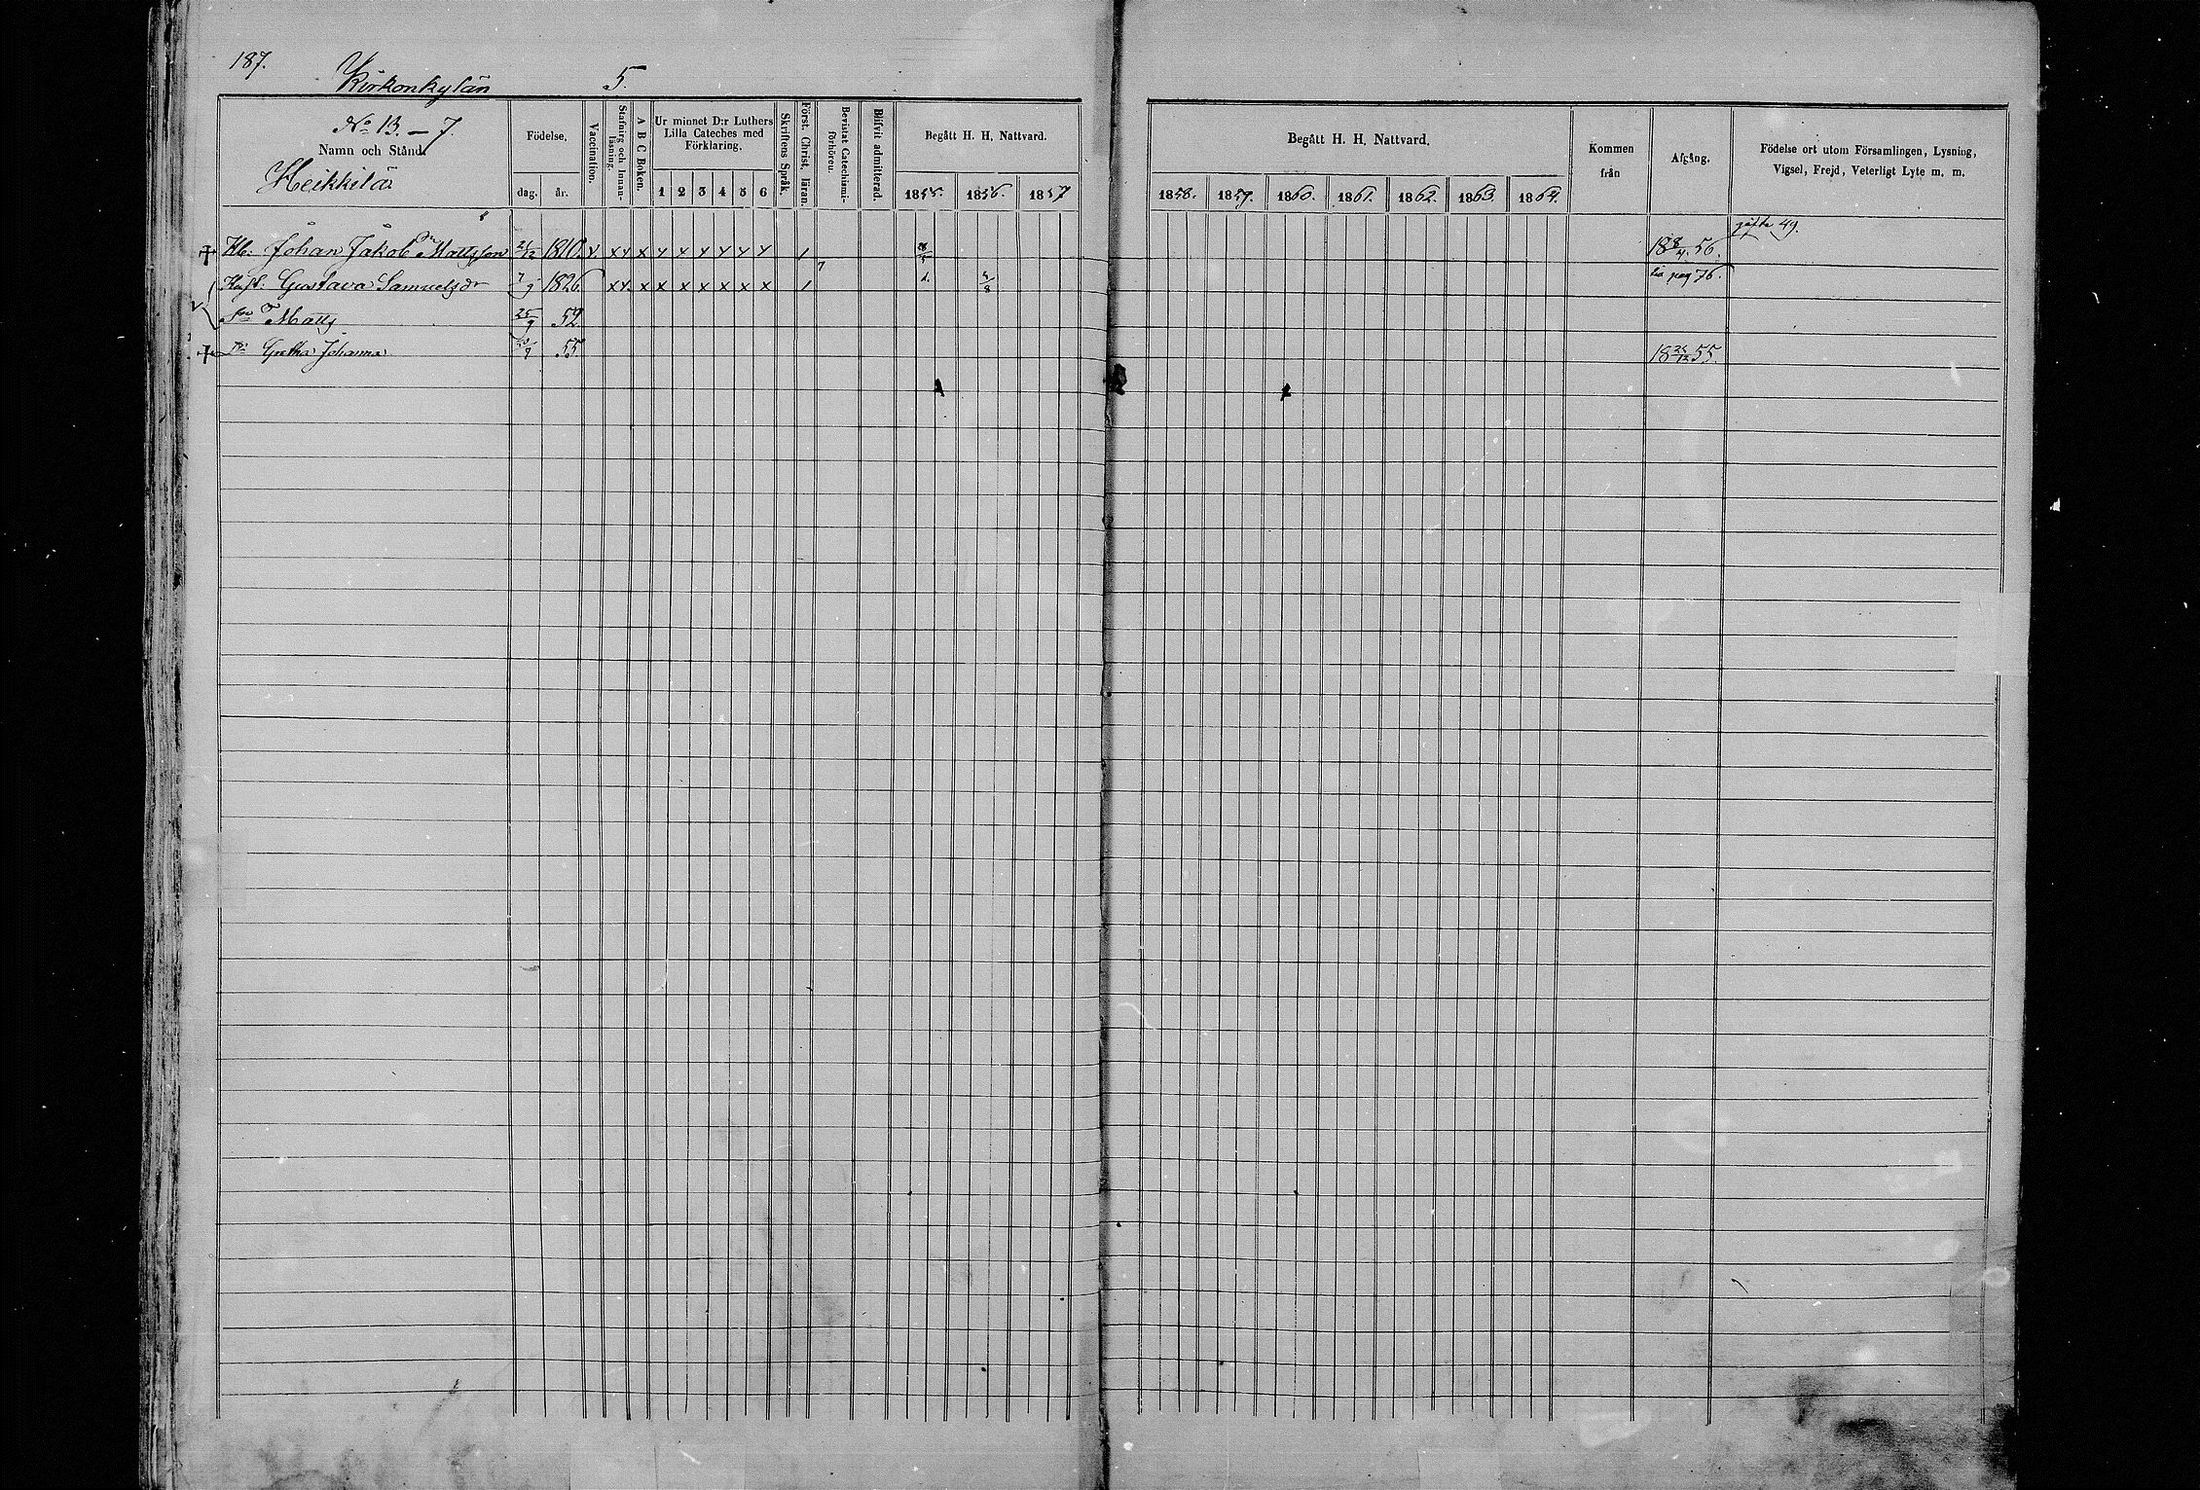 187.
Kirkonkylän 5.
No 13. – 7.
Namn och Stånd.
Heikkilä
Födelse.
dag. år.
Vaccination.
Stafning och Innan-
läsning.
A B C Boken.
Ur minnet D:r Luthers
Lilla Cateches med
Förklaring.
1 2 3 4 5 6
Skriftens Språk.
Först. Christ. läran.
Bevistat Catechismi-
förhören.
Blifvit admitterad.
Begått H. H. Nattvard.
1855. 1856. 1857
Begått H. H. Nattvard.
1858. 1859. 1860. 1861. 1862. 1863. 1864.
Kommen
från
Afgång.
Födelse ort utom Församlingen, Lysning,
Vigsel, Frejd, Veterligt Lyte m. m.
gifte 49.
Johan Jakob Mattsson 1810. x x x x x x x x x 1 18 8/4 56.
Gustava Samuelsdr 7/9 1826 x x x x x x x x x 1 4/8 pag 76.
Matts 25/9 52
Gretha Johanna 55 18 55.